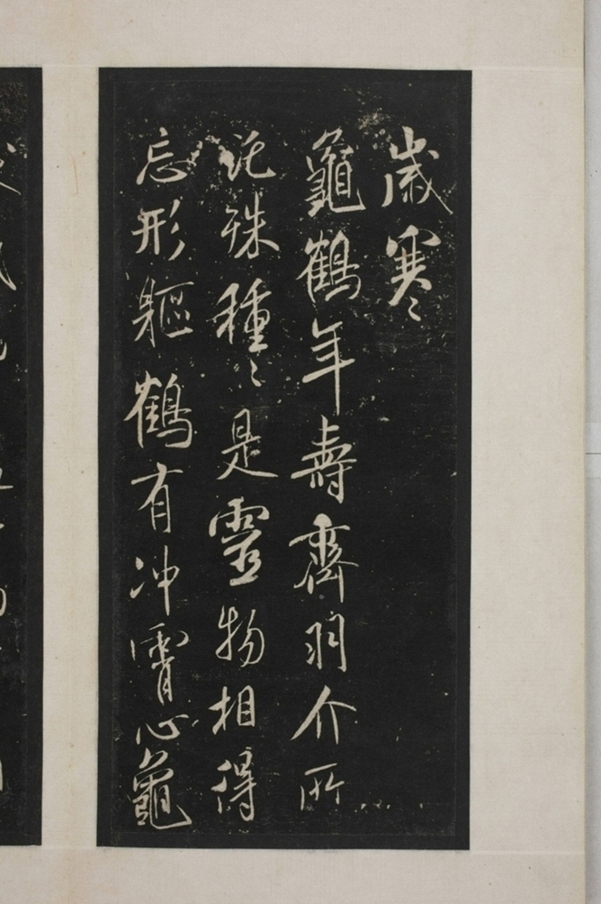 歲寒
龜鶴年壽齊羽介所
託殊種〻是靈物相得
忘形軀鶴有冲霄心龜